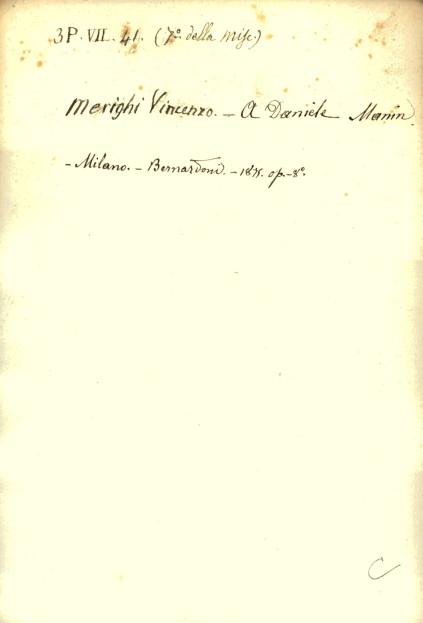 3P. VII. 41. (7º della Misc.)
Merighi Vincenzo. — A Daniele Manin
- Milano. - Bernardoni. - op. - 8º.
C